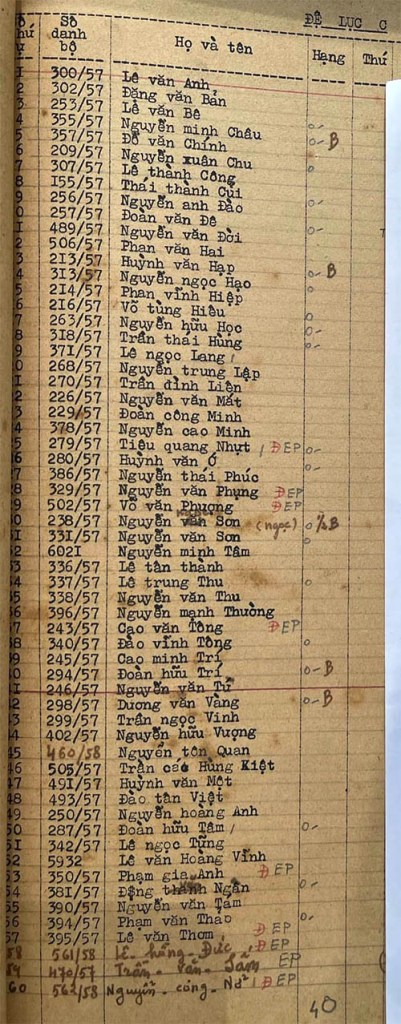 ĐỆ LỤC C
Số
danh
bộ Họ và tên Hạng Thứ
1 300/57 Lê văn Anh
2 302/57 Đặng văn Bản
3 253/57 Lê văn Bê
4 355/57 Nguyễn minh Châu o-
5 357/57 Đỗ văn Chính o- B
6 209/57 Nguyễn xuân Chu
7 307/57 Lê thành Công o
8 I55/57 Thái thành Củi
9 256/57 Nguyễn anh Đào o-
0 257/57 Đoàn văn Đê
I 489/57 Nguyễn văn Đòi o-
2 506/57 Phan văn Hai
3 2I3/57 Huỳnh văn Hạp
4 3I3/57 Nguyễn ngọc Hạo o- B
5 2I4/57 Phan vĩnh Hiệp o
6 2I6/57 Võ tùng Hiếu
7 263/57 Nguyễn hữu Học o
8 3I8/57 Trần thái Hùng o-
9 37I/57 Lê ngọc Lang o-
0 268/57 Nguyễn trung Lập
I 270/57 Trần đình Liên
2 226/57 Nguyễn văn Mắt
3 229/57 Đoàn công Minh
4 378/57 Nguyễn cao Minh
5 279/57 Tiệu quang Nhựt ĐEP o-
6 280/57 Huỳnh văn Ổ o-
7 386/57 Nguyễn thái Phúc
8 329/57 Nguyễn văn Phụng ĐEP
9 502/57 Võ văn Phượng ĐEP
0 238/57 Nguyễn văn Sơn (ngọc) o B
I 33I/57 Nguyễn văn Sơn o
2 602I Nguyễn minh Tâm
3 336/57 Lê tân thành
4 337/57 Lê trung Thu o
5 338/57 Nguyễn văn Thu
6 396/57 Nguyễn mạnh Thường
7 243/57 Cao văn Tông ĐEP
8 340/57 Đào vĩnh Tông o
9 245/57 Cao minh Trí
0 294/57 Đoàn hữu Trí o- B
I 246/57 Nguyễn văn Tử
2 298/57 Dương văn Vàng o- B
3 299/57 Trần ngọc Vinh
44 402/57 Nguyễn hữu Vượng
45 460/58 Nguyễn tôn Quan
46 505/57 Trần các Hùng Kiệt
47 49I/57 Huỳnh văn Một
48 493/57 Đào tân Việt
49 250/57 Nguyễn hoàng Anh
50 287/57 Đoàn hữu Tâm o-
5I 342/57 Lê ngọc Tững
52 5932 Lê văn Hoàng Vĩnh
53 350/57 Phạm gia Anh ĐEP
54 38I/57 Đặng thành Ngân o-
55 390/57 Nguyễn văn Tám
56 394/57 Phạm văn Thảo o-
57 395/57 Lê văn Thơm ĐEP
58 561/58 Lê hồng Đức ĐEP
59 470/57 Trần văn Sấm EP
60 562/58 Nguyễn công ĐEP
40